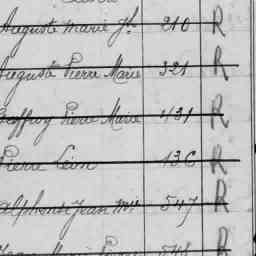 Auguste Marie Jh 210 R
Auguste Pierre Marie 321 R
Geoffroy Pierre Marie 431 R
Pierre Léon 136 R
Alphonse Jean Mie 547 R
Jean Marie 548 R